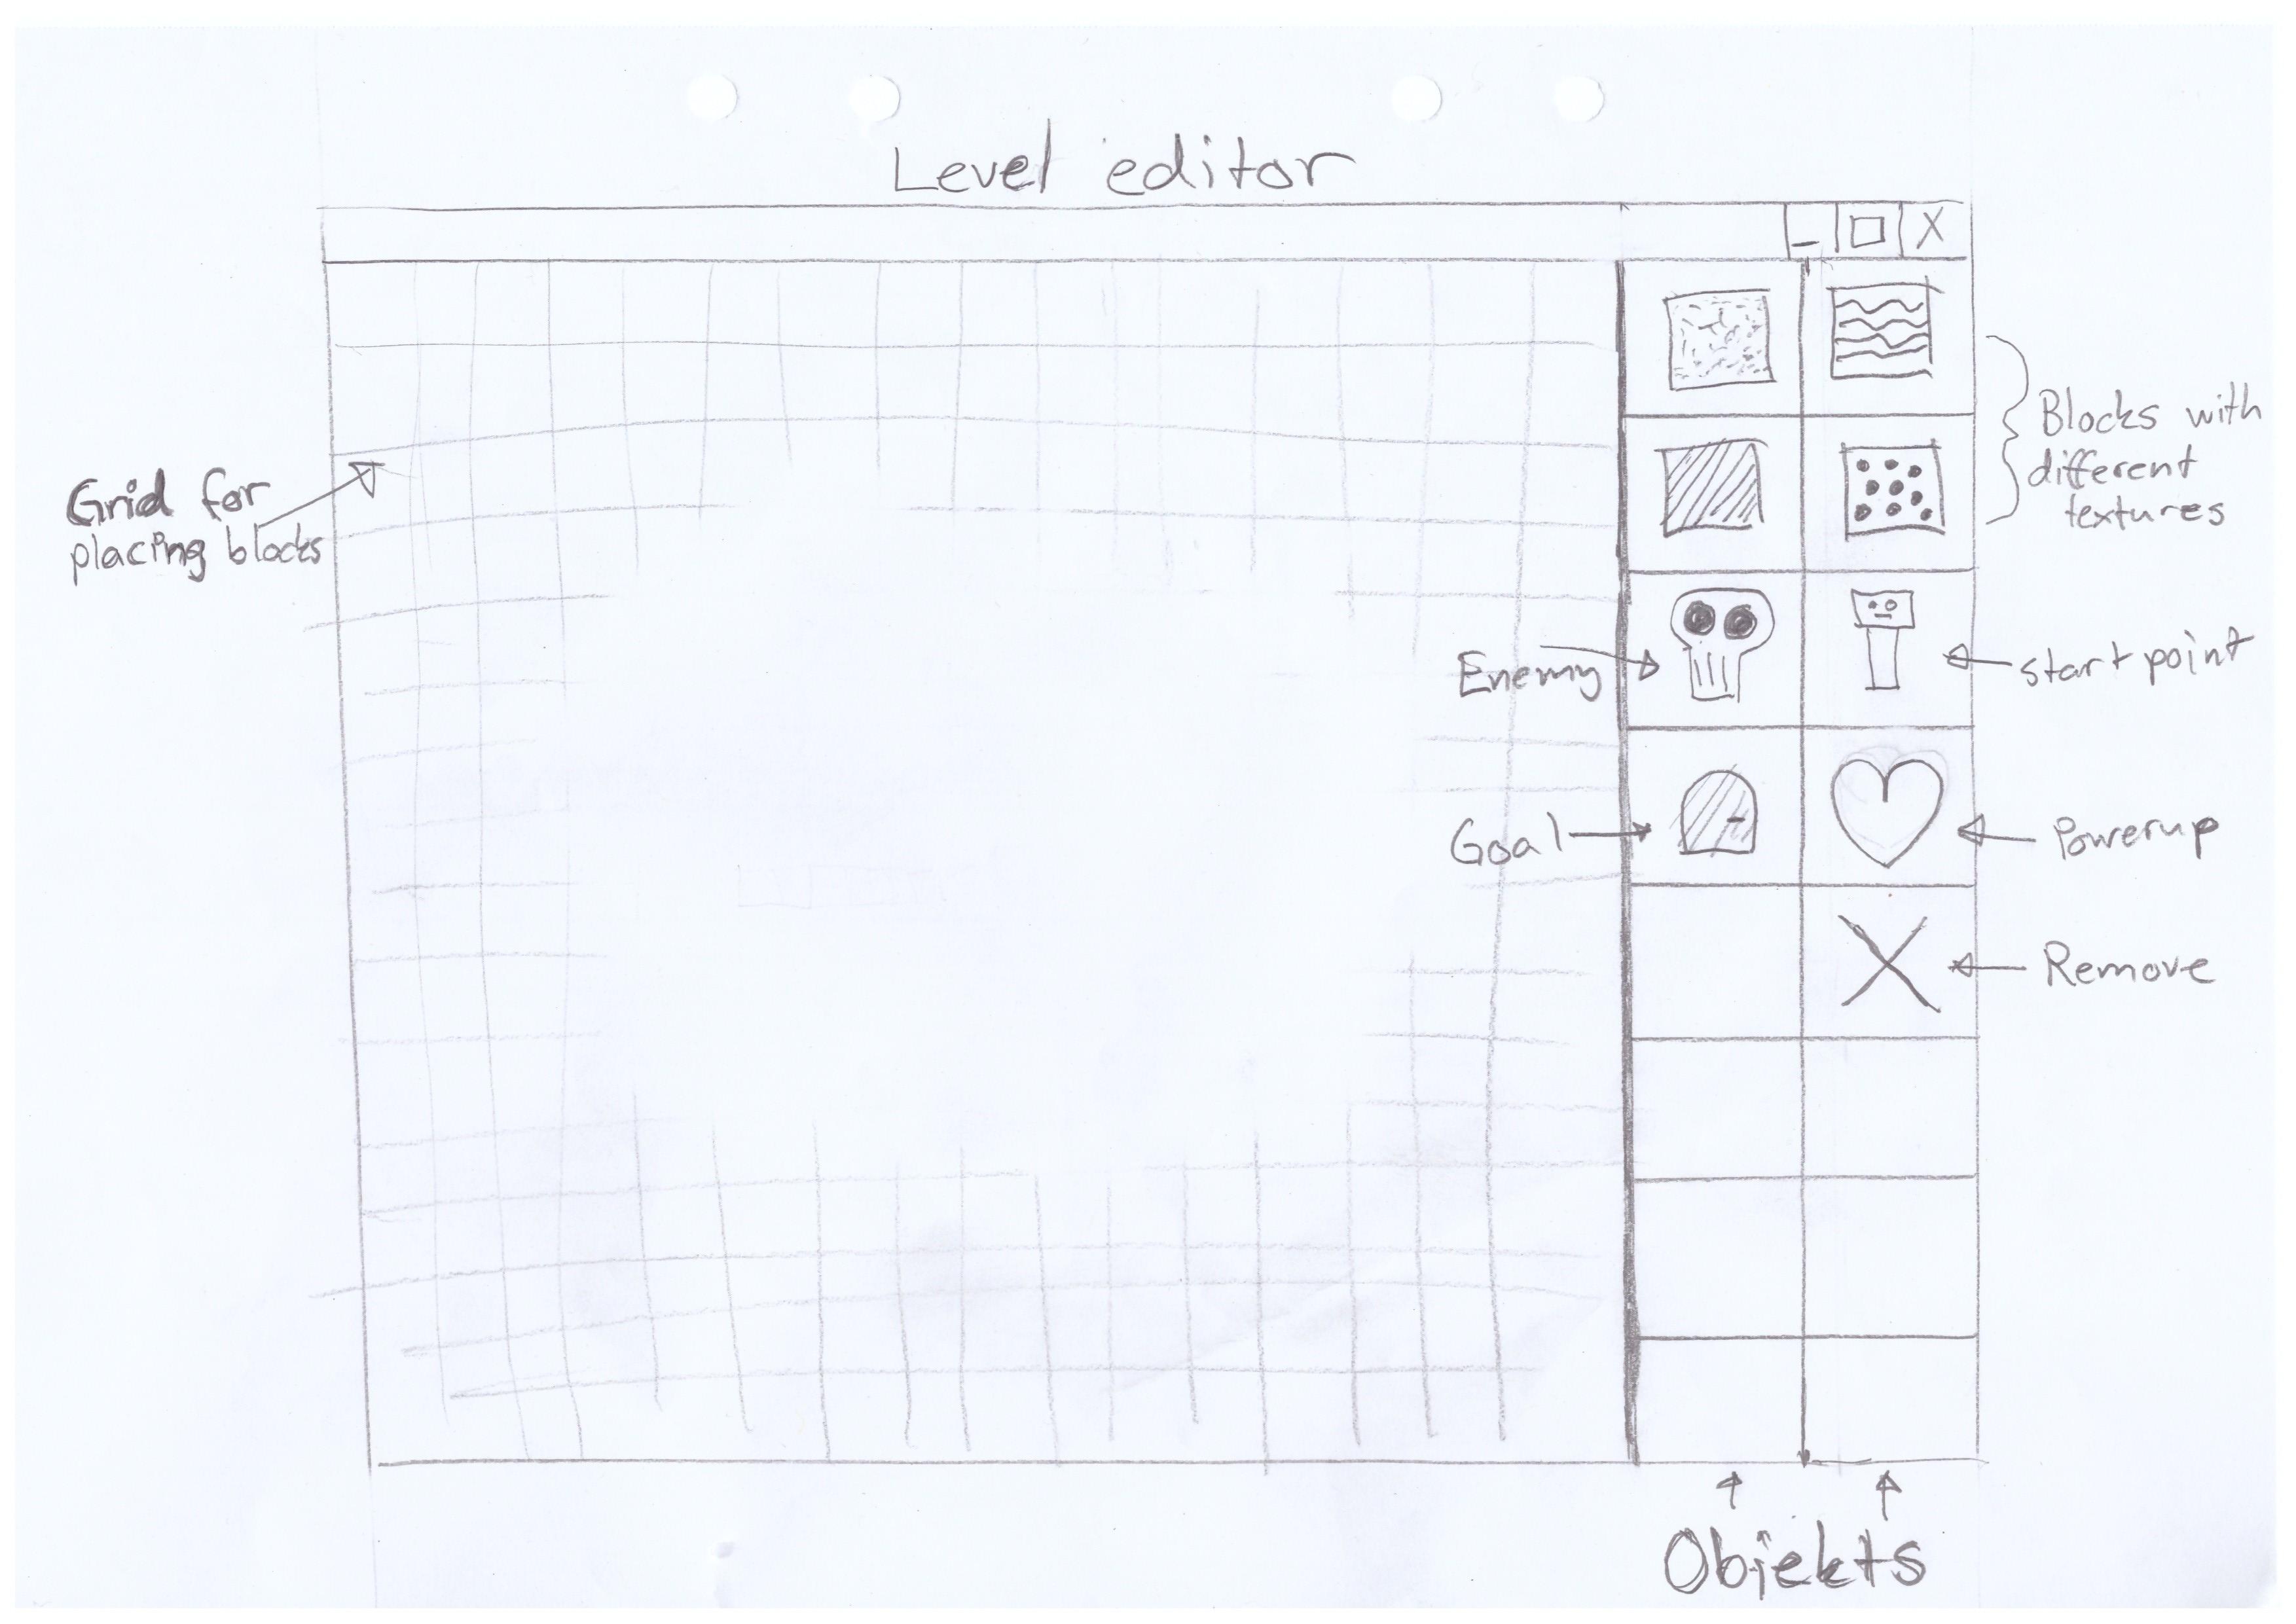 Level editor
X
Grid for
placing blocks
Blocks with
different
textures
Enemy
start point
Goal
Powerup
Remove
Objekts